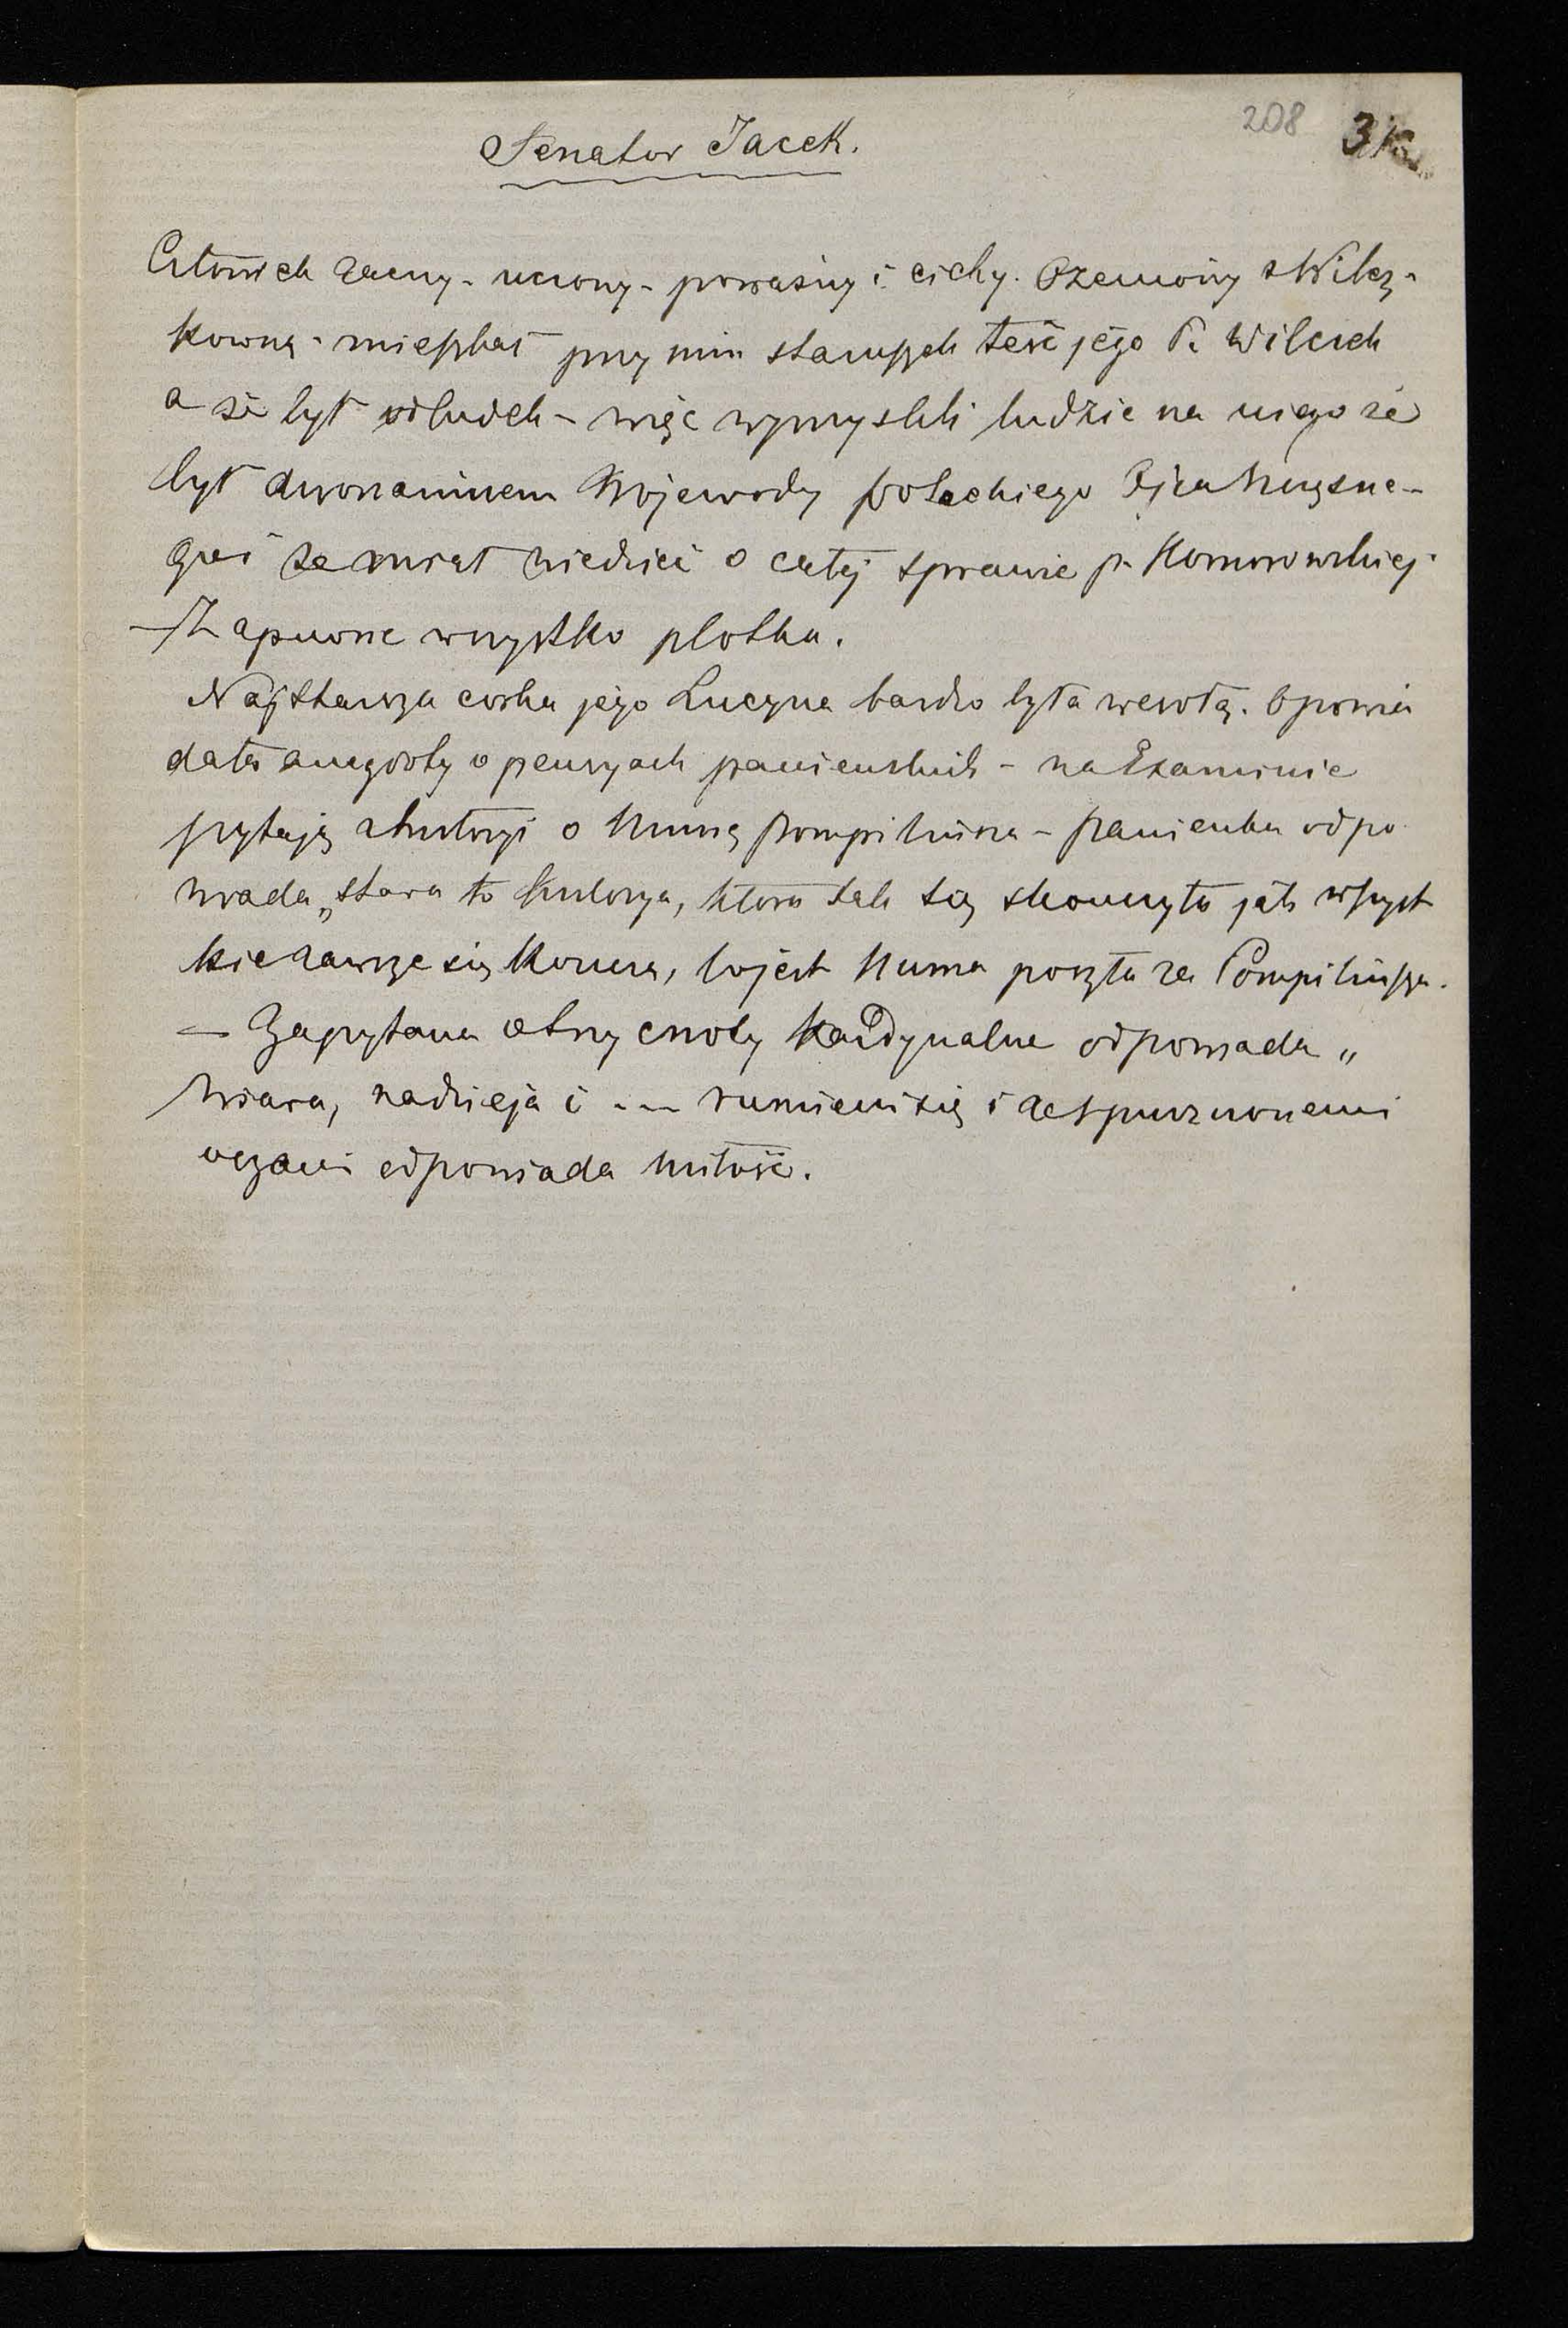 208
Senator Jacek.
Człowiek zacny - uczony - poważny i cichy. Ożeniony z Wilcz-
kowną - mieszkał przy nim staruszek teść jego P. Wilczek
a że był odludek - więc wymyslili ludzie na niego że
był dworaninem Wojewody Potockiego Ojca Szczęsne-
go i że miał wiedzieć o całej sprawie p. Komorowskiej.
- Zapewne wszystko plotka.
Najstarsza corka jego Lucyna bardzo była wesołą. Opowia
data anegdoty o pensyach panienskich - na Examinie
pytają z historyi o Numę Pompiliusza - panienka odpo
wiada „stara to historya, ktora tak się skonczyła jak wszyst
kie zawsze się koncza, to jest Numa poszła za Pompiliusza.
- Zapytana o trzy cnoty kardynalne odpowiada „
Wiara, nadzieja i --- rumieni się i ze spuszczonemi
oczami odpowiada miłość.